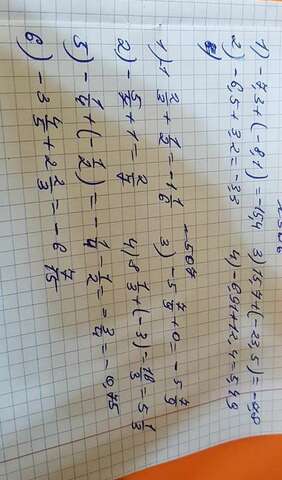 1) -7,3 + (-8,1) = -15,4 3) 15,7 + (-23,5) = -7,8
2) -6,5 + 3,2 = -3,3 4) -6,91 + 12,4 = 5,49
1) 1 2/3 + 1/2 = -1 1/6 3) -5 7/9 + 0 = -5 7/9
2) -5/7 + 1 = 2/7 4) 8 1/3 + (-3) = 16/3 = 5 1/3
5) -1/4 + (-1/2) = -1/4 - 1/2 = -3/4 = -0,75
6) -3 4/5 + 2 2/3 = -6 7/15